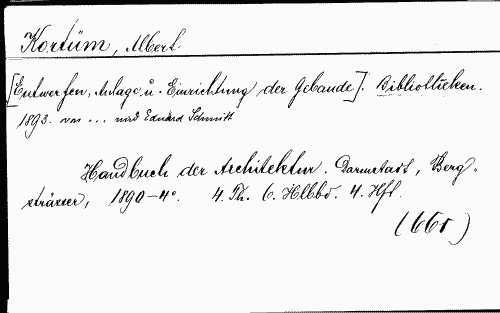 Kortüm, Albert.
[Entwerfen, Anlage u. Einrichtung der Gebäude]. Bibliotheken.
1893. von ... und Eduard Schmitt
Handbuch der Architektur. Darmstadt, Berg-
strässer, 1890-4°. 4. Th. 6. Hlbbd. 4. Hft.
(661)